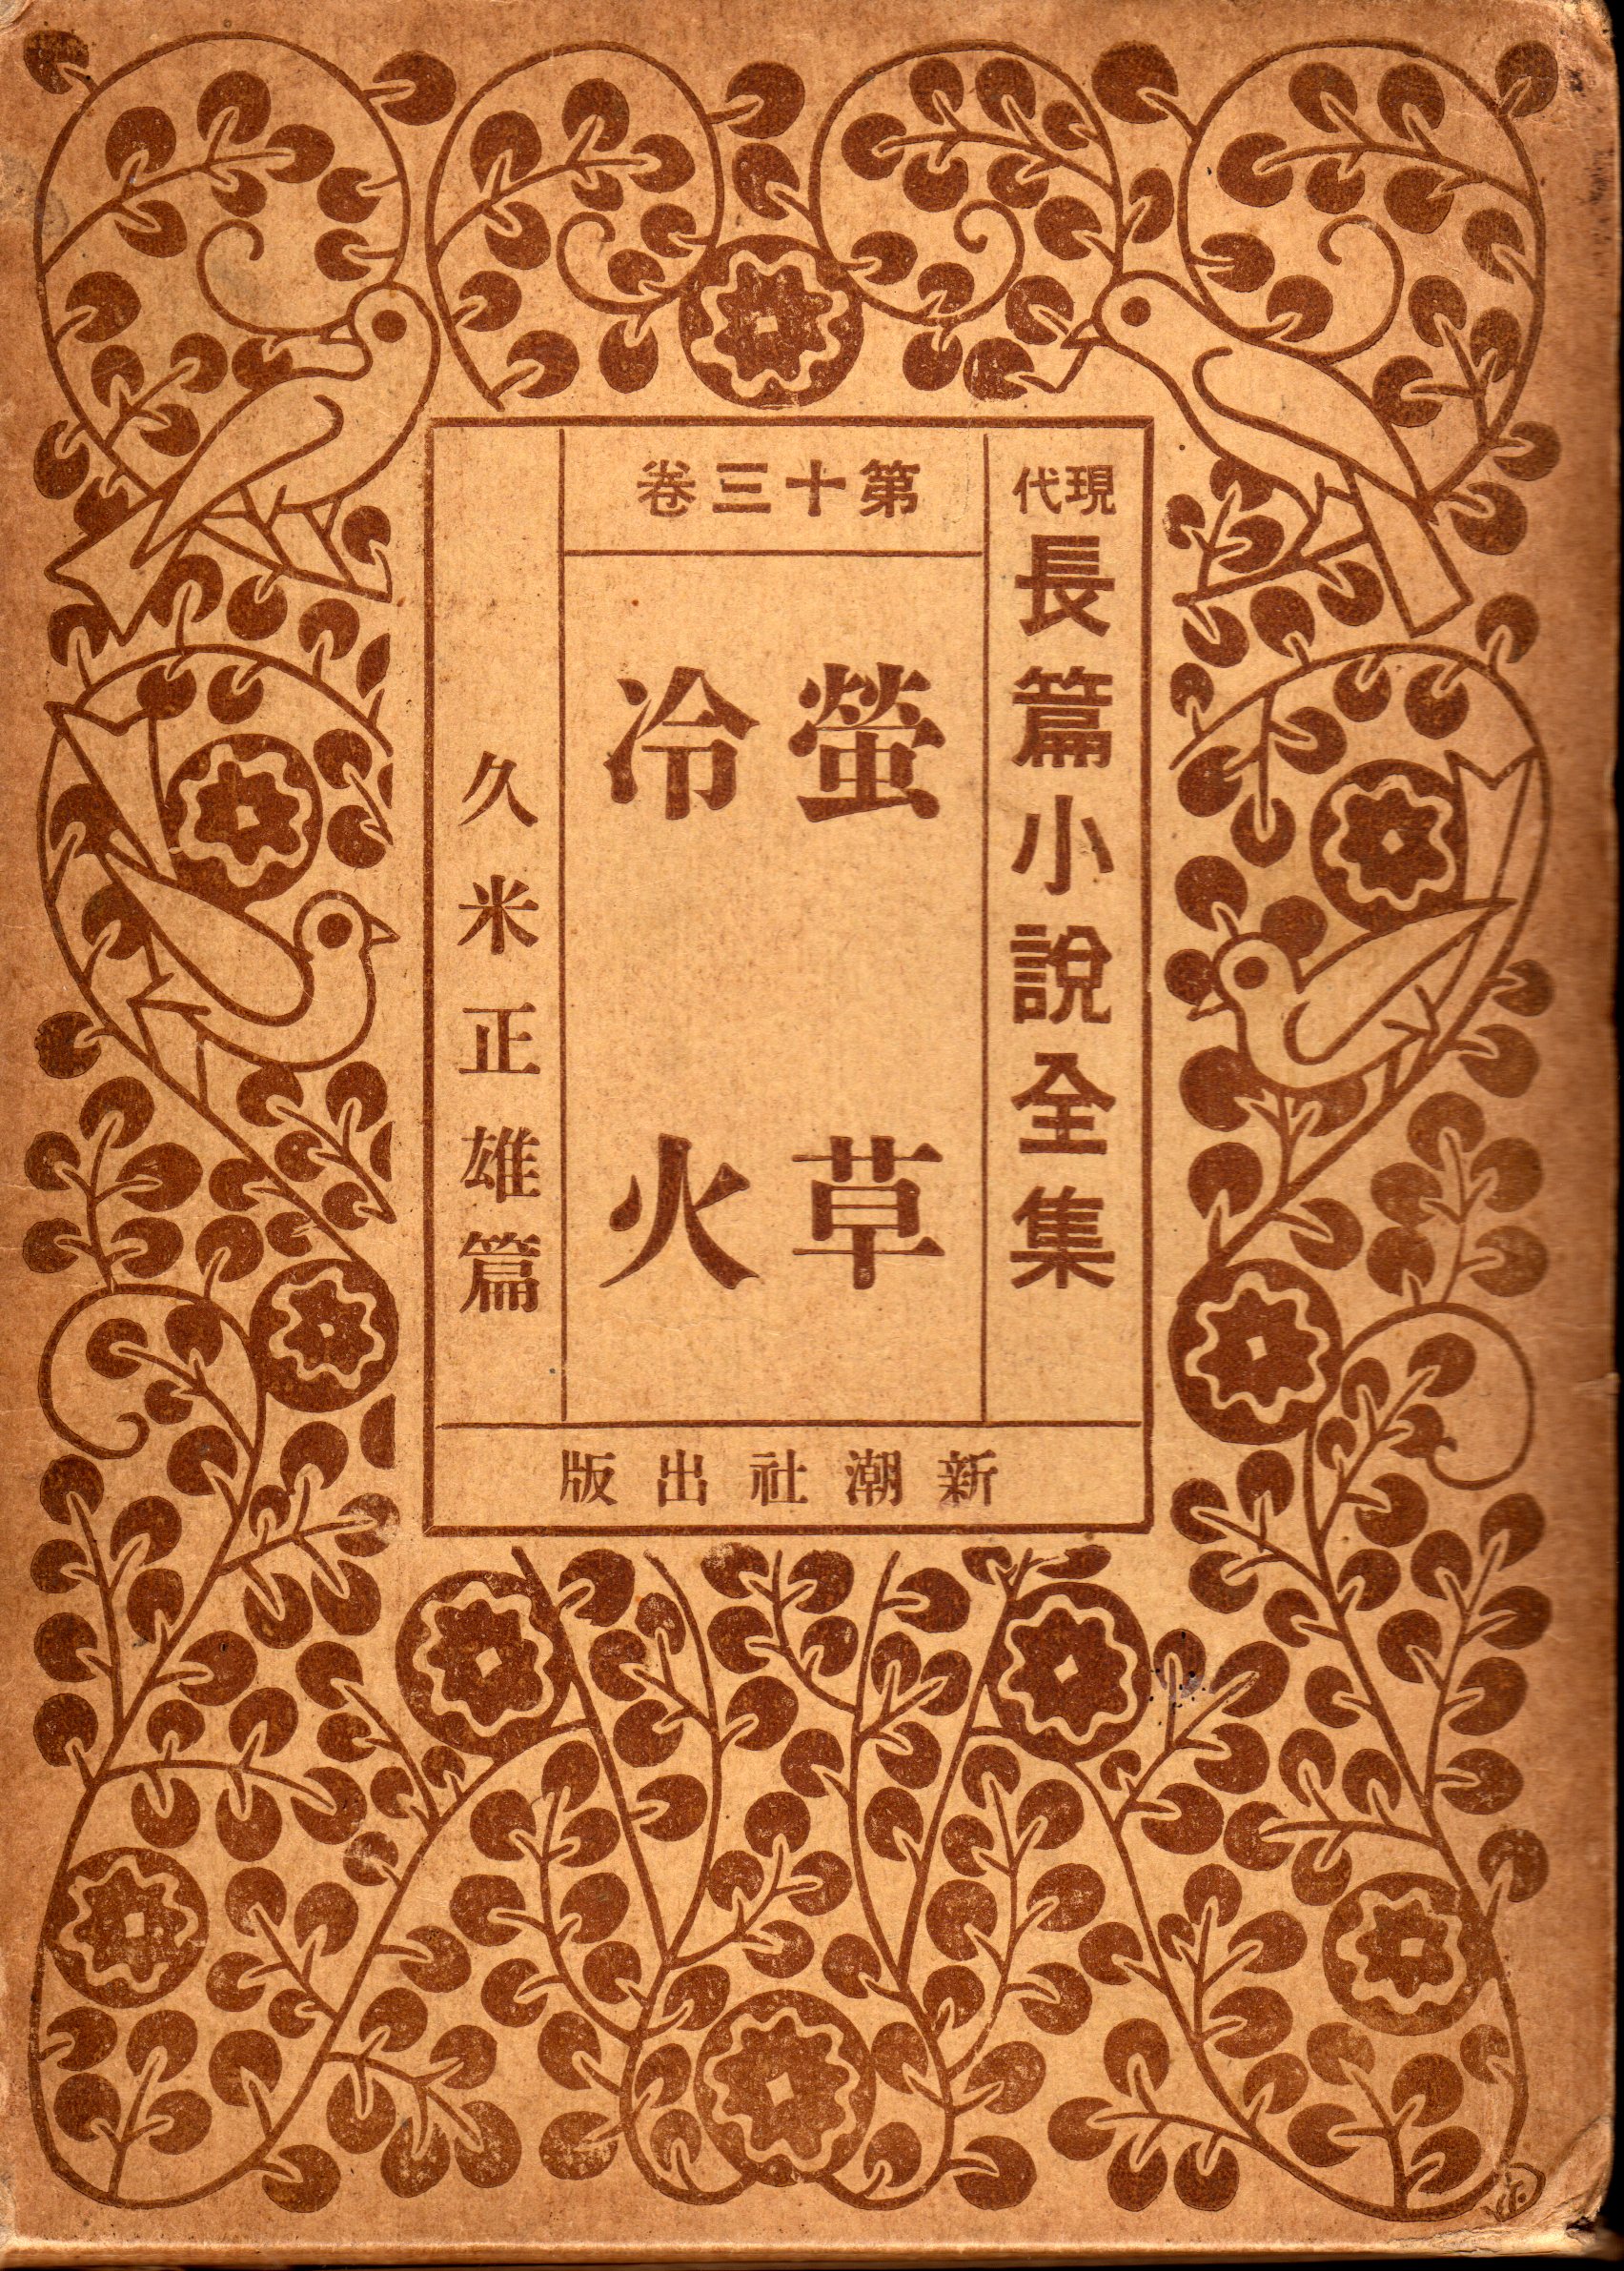 現代長篇小說全集
第十三卷
螢草
冷火
久米正雄篇
新潮社出版